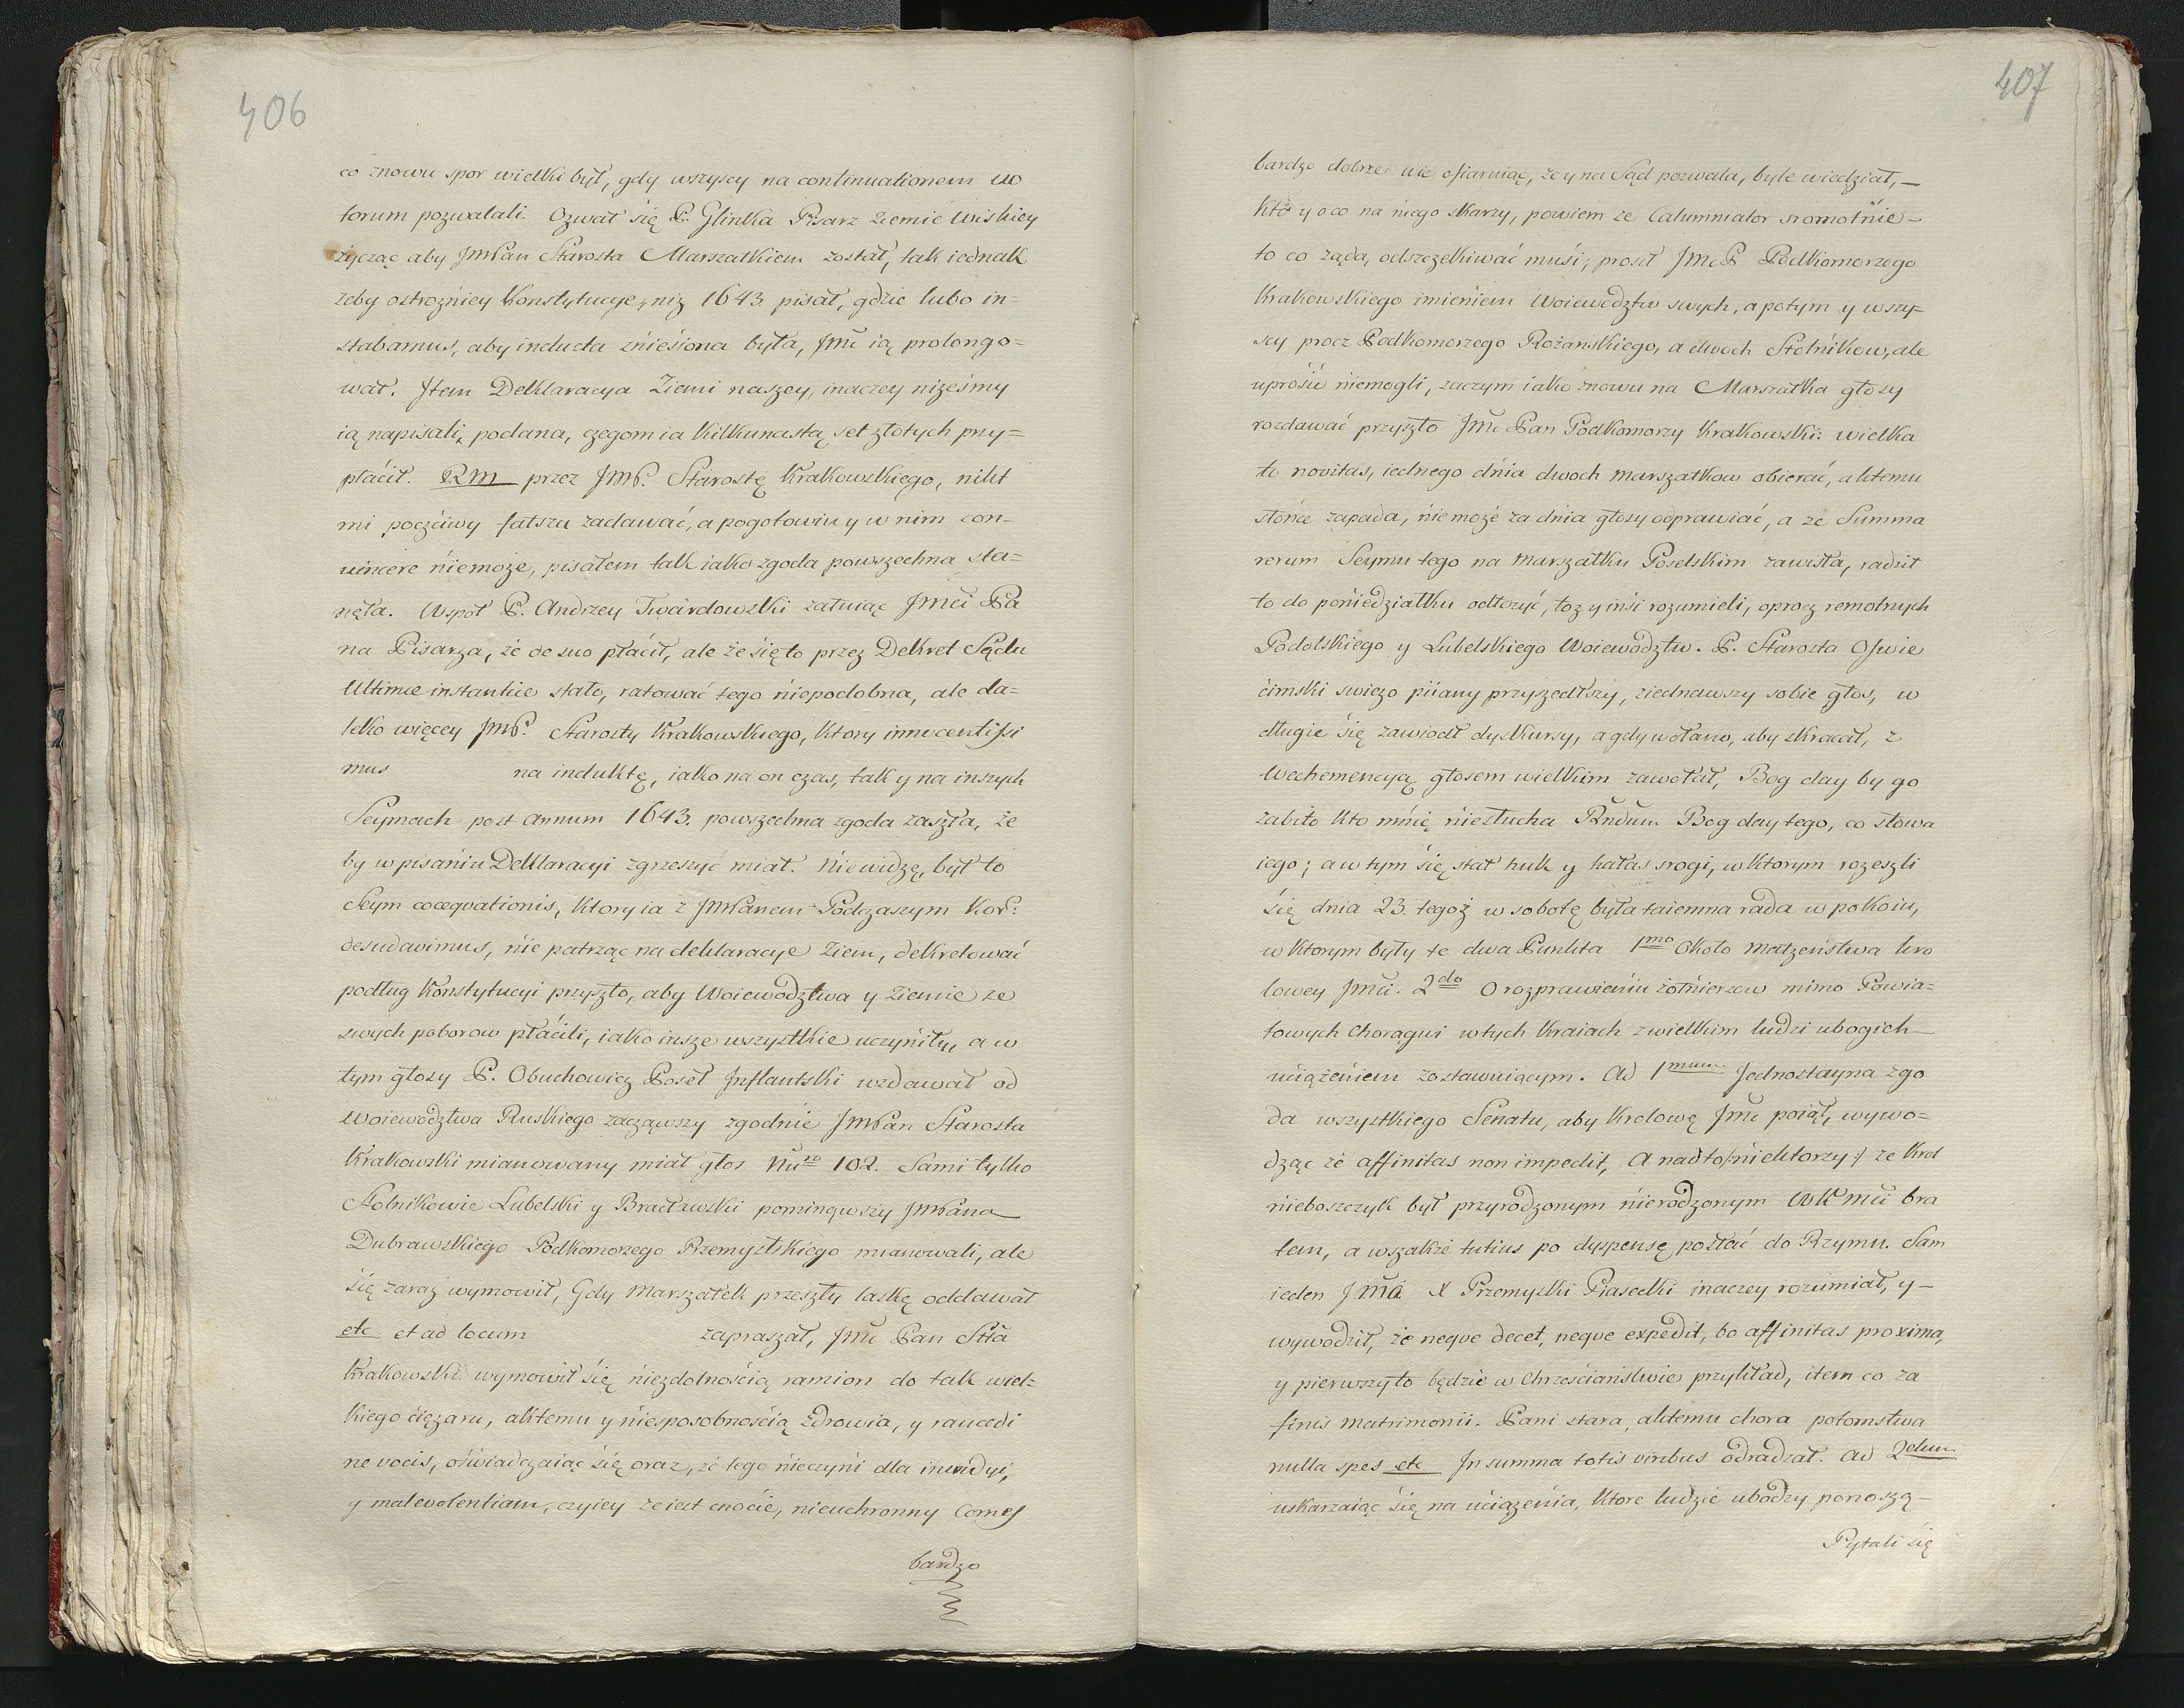 406
co znowu spor wielki był, gdy wszyscy na continuationem vo
torum pozwalali. Ozwał się P. Glinka Pisarz Ziemie Wiskiey
życząc aby JmPan Starosta Marszałkiem został, tak iednak
żeby ostrożniey Konstytucye, niż 1643 pisał, gdzie lubo in=
stabamus, aby inducta zniesiona była, Jmć ią prolongo=
wał. Jtem Deklaracya Ziemi naszey, inaczey niżeśmy
ią napisali, podana, czegom ia kilkunastą set złotych przy=
płacił. RM przez JmP. Starostę Krakowskiego, nikt
mi poczciwy fałszu zadawać, a pogotowiu y w nim con-
vincere niemoże, pisałem tak iako zgoda powszechna sta=
nęła. Wspoł P. Andrzey Twardowski żałuiąc Jmci Pa
na Pisarza, że de suo płacił, ale że się to przez Dekret Sądu
Ultimæ instantiæ stało, ratować tego niepodobna, ale da=
leko więcey JmP. Starosty Krakowskiego, ktory innocentissi
mus na induktę, iako na on czas, tak y na inszych
Seymach post annum 1643. powszechna zgoda zaszła, że
by w pisaniu Deklaracyi zgrzeszyć miał. Niewidzę, był to
Seym coæquationis, ktory ia z JmPanem Podczaszym Kor:
desudavimus, nie patrząc na deklaracye Ziem, dekretować
podług Konstytucyi przyszło, aby Woiewodztwa y Ziemie ze
swych poborow płacili, iako insze wszystkie uczyniły, a w
tym głosy P. Obuchowicz Poseł Jnflantski wzdawał od
Woiewodztwa Ruskiego zacząwszy zgodnie JmPan Starosta
Krakowski mianowany miał głos Nro 102. Sami tylko
Stolnikowie Lubelski y Bracławski pominąwszy JmPana
Dubrawskiego Podkomorzego Przemyslskiego mianowali, ale
się zaraz wymowił, Gdy Marszałek przeszły laskę oddawał
etc et ad locum zapraszał, Jmć Pan Stta
Krakowski wymowił się niezdolnością ramion do tak wiel=
kiego ciężaru, aktemu y niesposobnością zdrowia, y raucedi
ne vocis, oświadczaiąc się oraz, że tego nieczyni dla inwidyi,
y malevolentiam, czyiey że iest cnocie, nieuchronny Comes
bardzo
407
bardzo dobrze wie ofiaruiąc, że y na Sąd pozwala, byle wiedział, —
kto y o co na niego skarzy, powiem ze Calumniator sromotnie —
to co żąda, odszczekiwać musi; prosił JmcP Podkomorzego
Krakowskiego imieniem Woiewodztw swych, a potym y wszy=
scy procz Podkomorzego Rożanskiego, a dwoch Stolnikow, ale
uprosić niemogli, zaczym iako znowu na Marszałka głosy
rozdawać przyszło Jmć Pan Podkomorzy Krakowski: wielka
to novitas, iednego dnia dwoch marszałkow obierać, aktemu
słonce zapada, niemoże za dnia głosy odprawiać, a ze Summa
rerum Seymu tego na marszałku Poselskim zawisła, radził
to do poniedziałku odłożyć, toz y insi rozumieli, oprocz remotnych
Podolskiego y Lubelskiego Woiewodztw. P. Starosta Oswie
cimski swiezo piiany przyszedłszy, ziednawszy sobie głos, w
długie się zawiodł dyskursy, a gdy wołano, aby skracał, z
Wechemencyą głosem wielkim zawołał, Bog day by go
zabiło kto mnie niesłucha Rndum Bog day tego, co słowa
iego; a w tym się stał huk y hałas srogi, w ktorym rozeszli
się dnia 23. tegoż w sobotę była taiemna rada w pokoiu,
w ktorym były te dwa Punkta 1mo Około małżeństwa kro
lowey Jmći. 2do O rozprawieniu żołnierzow mimo Powia=
towych Chorągwi w tych kraiach z wielkim ludzi ubogich —
uciążeniem zostawuiącym. Ad 1mum Jednostayna zgo
da wszystkiego Senatu, aby Krolowę Jmć poiął, wywo=
dząc że affinitas non impedit, A nadto /:niektorzy:/ ze Krol
nieboszczyk był przyrodzonym nierodzonym WKmći bra
tem, a wszakże tutius po dyspensę posłać do Rzymu. Sam
ieden Jmć X Przemyski Piasecki inaczey rozumiał, y —
wywodził, że neqve decet, neqve expedit, bo affinitas proxima,
y pierwszy to będzie w Chrześcianstwie przykład, item co za
finis matrimonii. Pani stara, aktemu chora potomstwa
nulla spes etc Jn summa totis viribus odradzał. Ad 2dum
uskarzaiąc się na uciążenia, ktore ludzie ubodzy ponoszą —
Pytali się